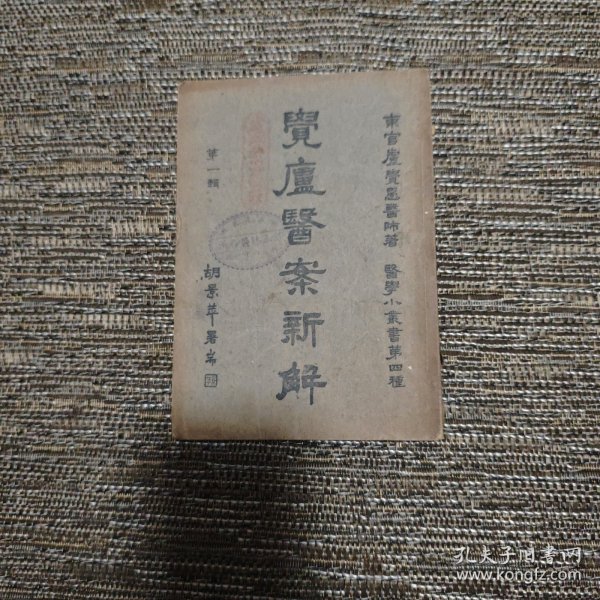 東官盧覺愚醫師著 醫學小叢書第四種
覺廬醫案新解
第一輯
胡景苹署耑
孔夫子旧书网
www.kongfz.com